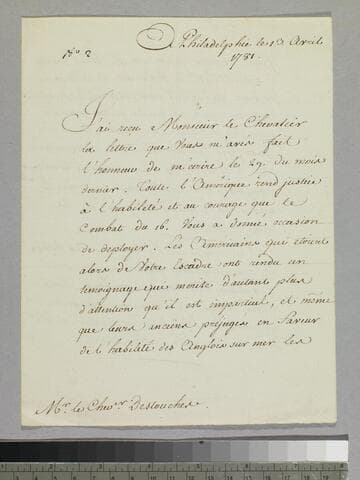 N.º 2
A Philadelphie le 13 Avril
1781.
J'ai reçu Monsieur le Chevalier
la lettre que vous m'avés fait
l'honneur de m'écrire le 29 du mois
dernier. Toute l'Amérique rend justice
à l'habileté et au courage que le
Combat du 16. vous a donné occasion
de deployer. Les Américains qui étoient
alors de votre Escadre ont rendu un
temoignage qui merite d'autant plus
d'attention qu'il est impartial, et même
que leurs anciens prejugés en faveur
de l'habileté des Anglois sur mer les
Mr. le Chevr. Destouches.